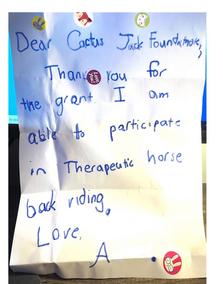 Dear Cactus Jack Foundation,
Thank you for
the grant I am
able to participate
in Therapeutic horse
back riding.
Love,
A